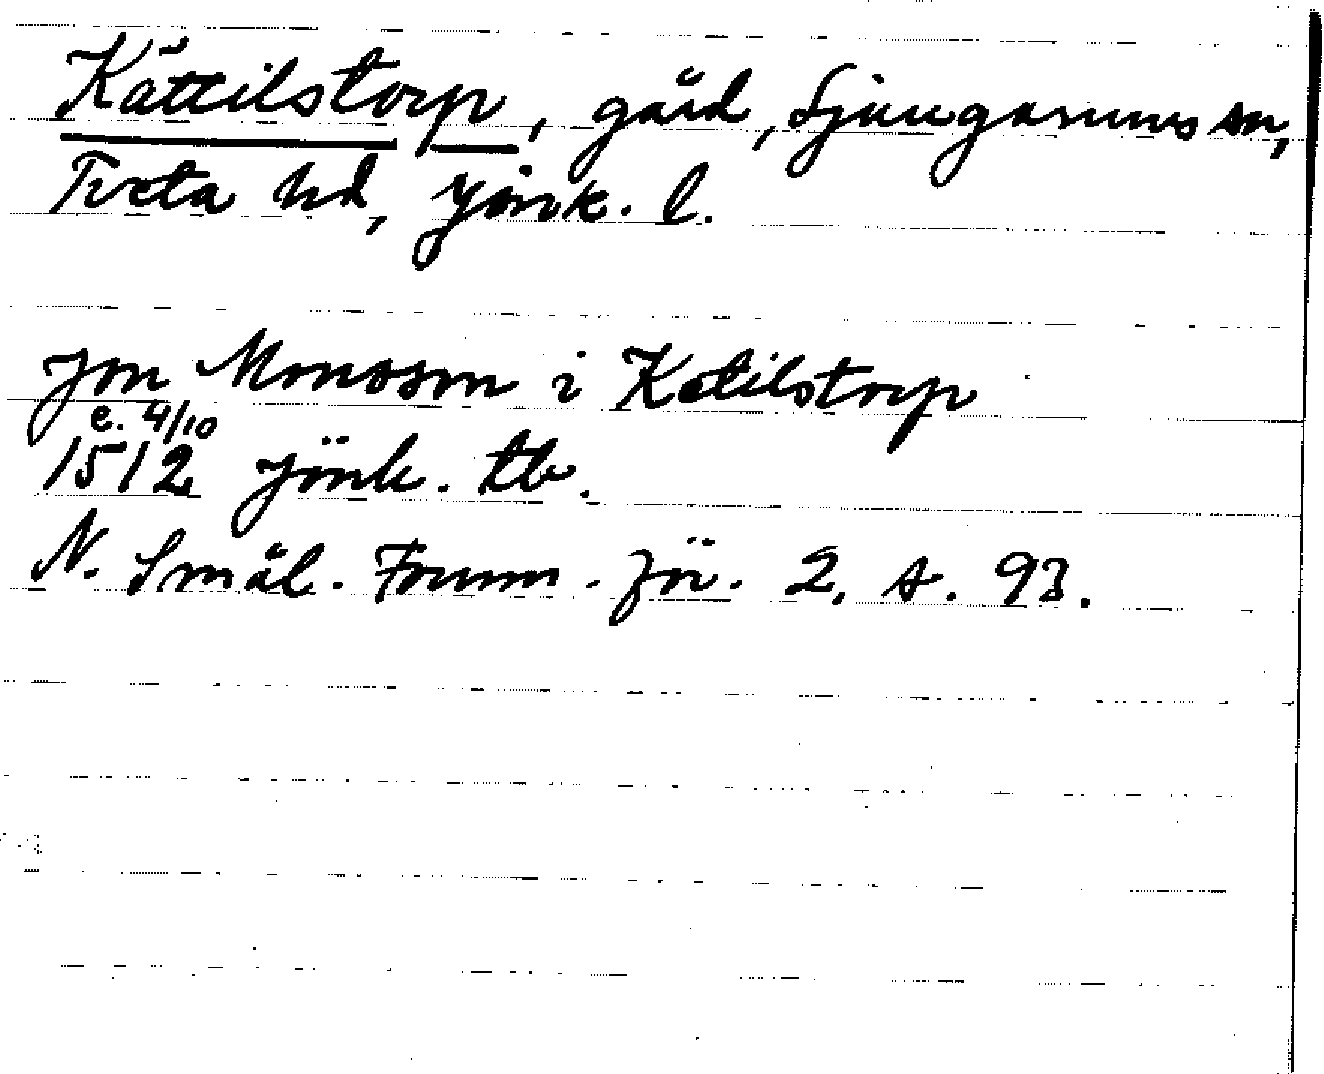 Kättilstorp, gård, Ljungarums sn,
Tveta hd, Jönk. l.
Jon Monsson i Ketilstorp
e. 4/10
1512 Jönk. tb.
N. Smål. Fornm. för. 2, s. 93.